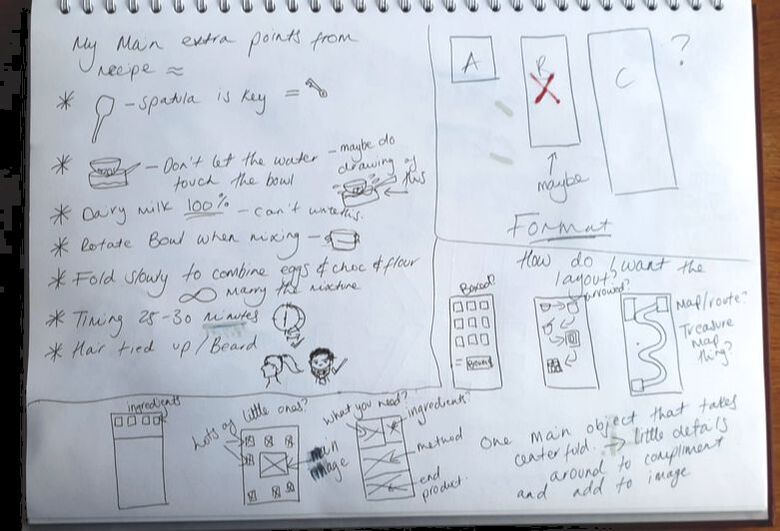 My Main extra points from
recipe ≈
* - spatula is key =
* - Don't let the water
touch the bowl
- maybe do
drawing of
this
* Dairy milk 100% - can't
* Rotate Bowl when mixing -
* Fold slowly to combine eggs & choc & flour
marry the mixture
* Timing 25-30 minutes
* Hair tied up / Beard
A
B
C
?
maybe
Format
How do I want the
layout?
Boxed?
around?
Map/route?
Treasure
Map
thing?
ingredients
Lots of little ones?
main
image
what you need?
ingredients?
method
end
product.
One main object that takes
centerfold. → little details
around to compliment
and add to image